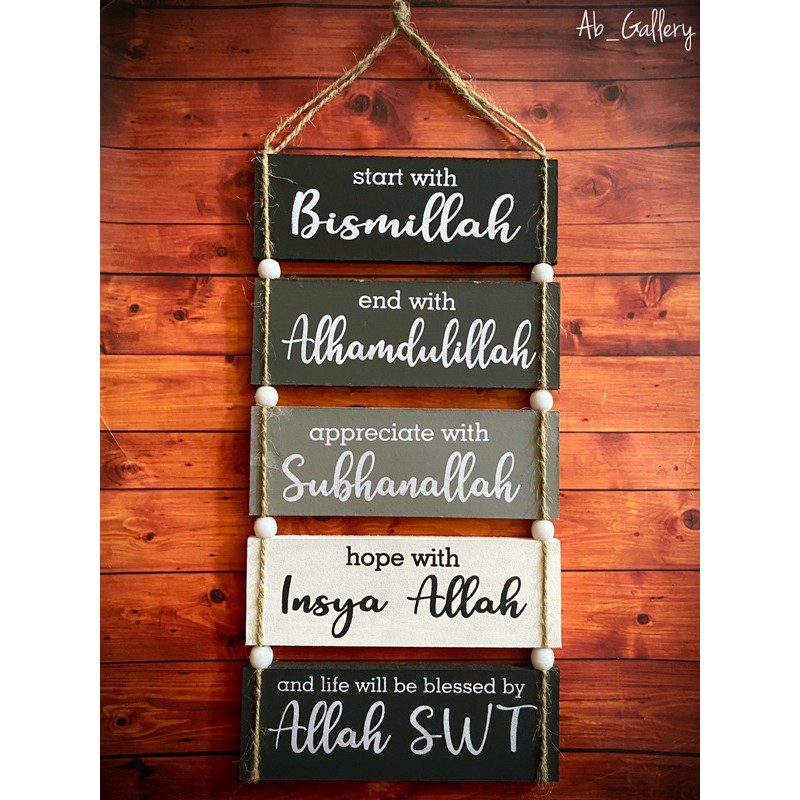 Ab_Gallery
start with
Bismillah
end with
Alhamdulillah
appreciate with
Subhanallah
hope with
Insya Allah
and life will be blessed by
Allah SWT